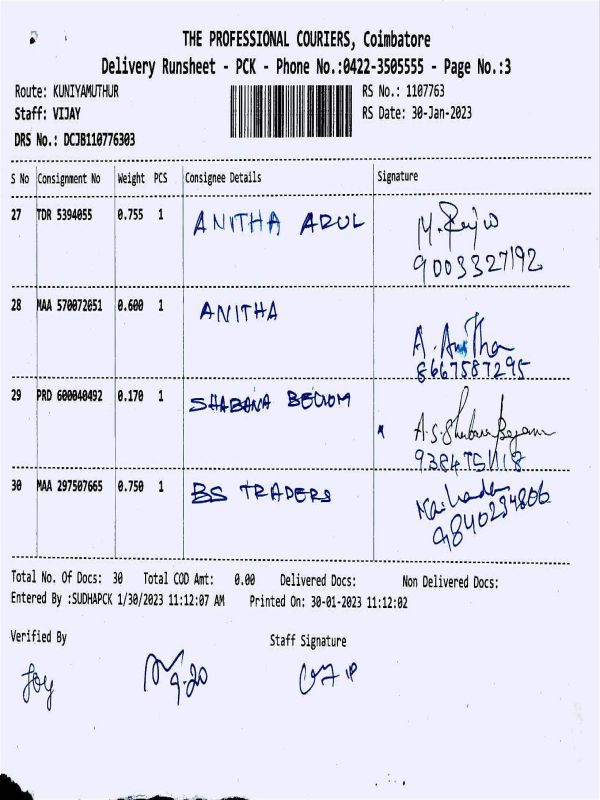 THE PROFESSIONAL COURIERS, Coimbatore
Delivery Runsheet - PCK - Phone No.:0422-3505555 - Page No.:3
Route: KUNIYAMUTHUR
RS No.: 1107763
Staff: VIJAY
RS Date: 30-Jan-2023
DRS No.: DCJB110776303
S No Consignment No Weight PCS Consignee Details Signature
27 TDR 5394055 0.755 1 ANITHA ARUL M.
9003327192
28 MAA 570072051 0.600 1 ANITHA A. Anitha
8667587295
29 PRD 600040492 0.170 1 SHABANA BEGUM A.S. Shabana Begam
9384751118
30 MAA 297507665 0.750 1 BS TRADERS
9840234806
Total No. Of Docs: 30 Total COD Amt: 0.00 Delivered Docs: Non Delivered Docs:
Entered By :SUDHAPCK 1/30/2023 11:12:07 AM Printed On: 30-01-2023 11:12:02
Verified By Staff Signature
Joy 9.20